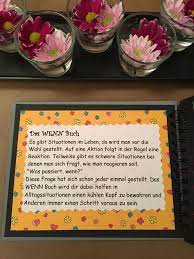 Das WENN Buch
Es gibt Situationen im Leben, da wird man vor die
Wahl gestellt. Auf eine Aktion folgt in der Regel eine
Reaktion. Teilweise gibt es schwere Situationen bei
denen man sich fragt, wie man reagieren soll.
"Was passiert, wenn?"
Diese Frage hat sich schon jeder einmal gestellt. Das
WENN Buch wird dir dabei helfen in
Alltagssituationen einen kühlen Kopf zu bewahren und
Anderen immer einen Schritt voraus zu sein.